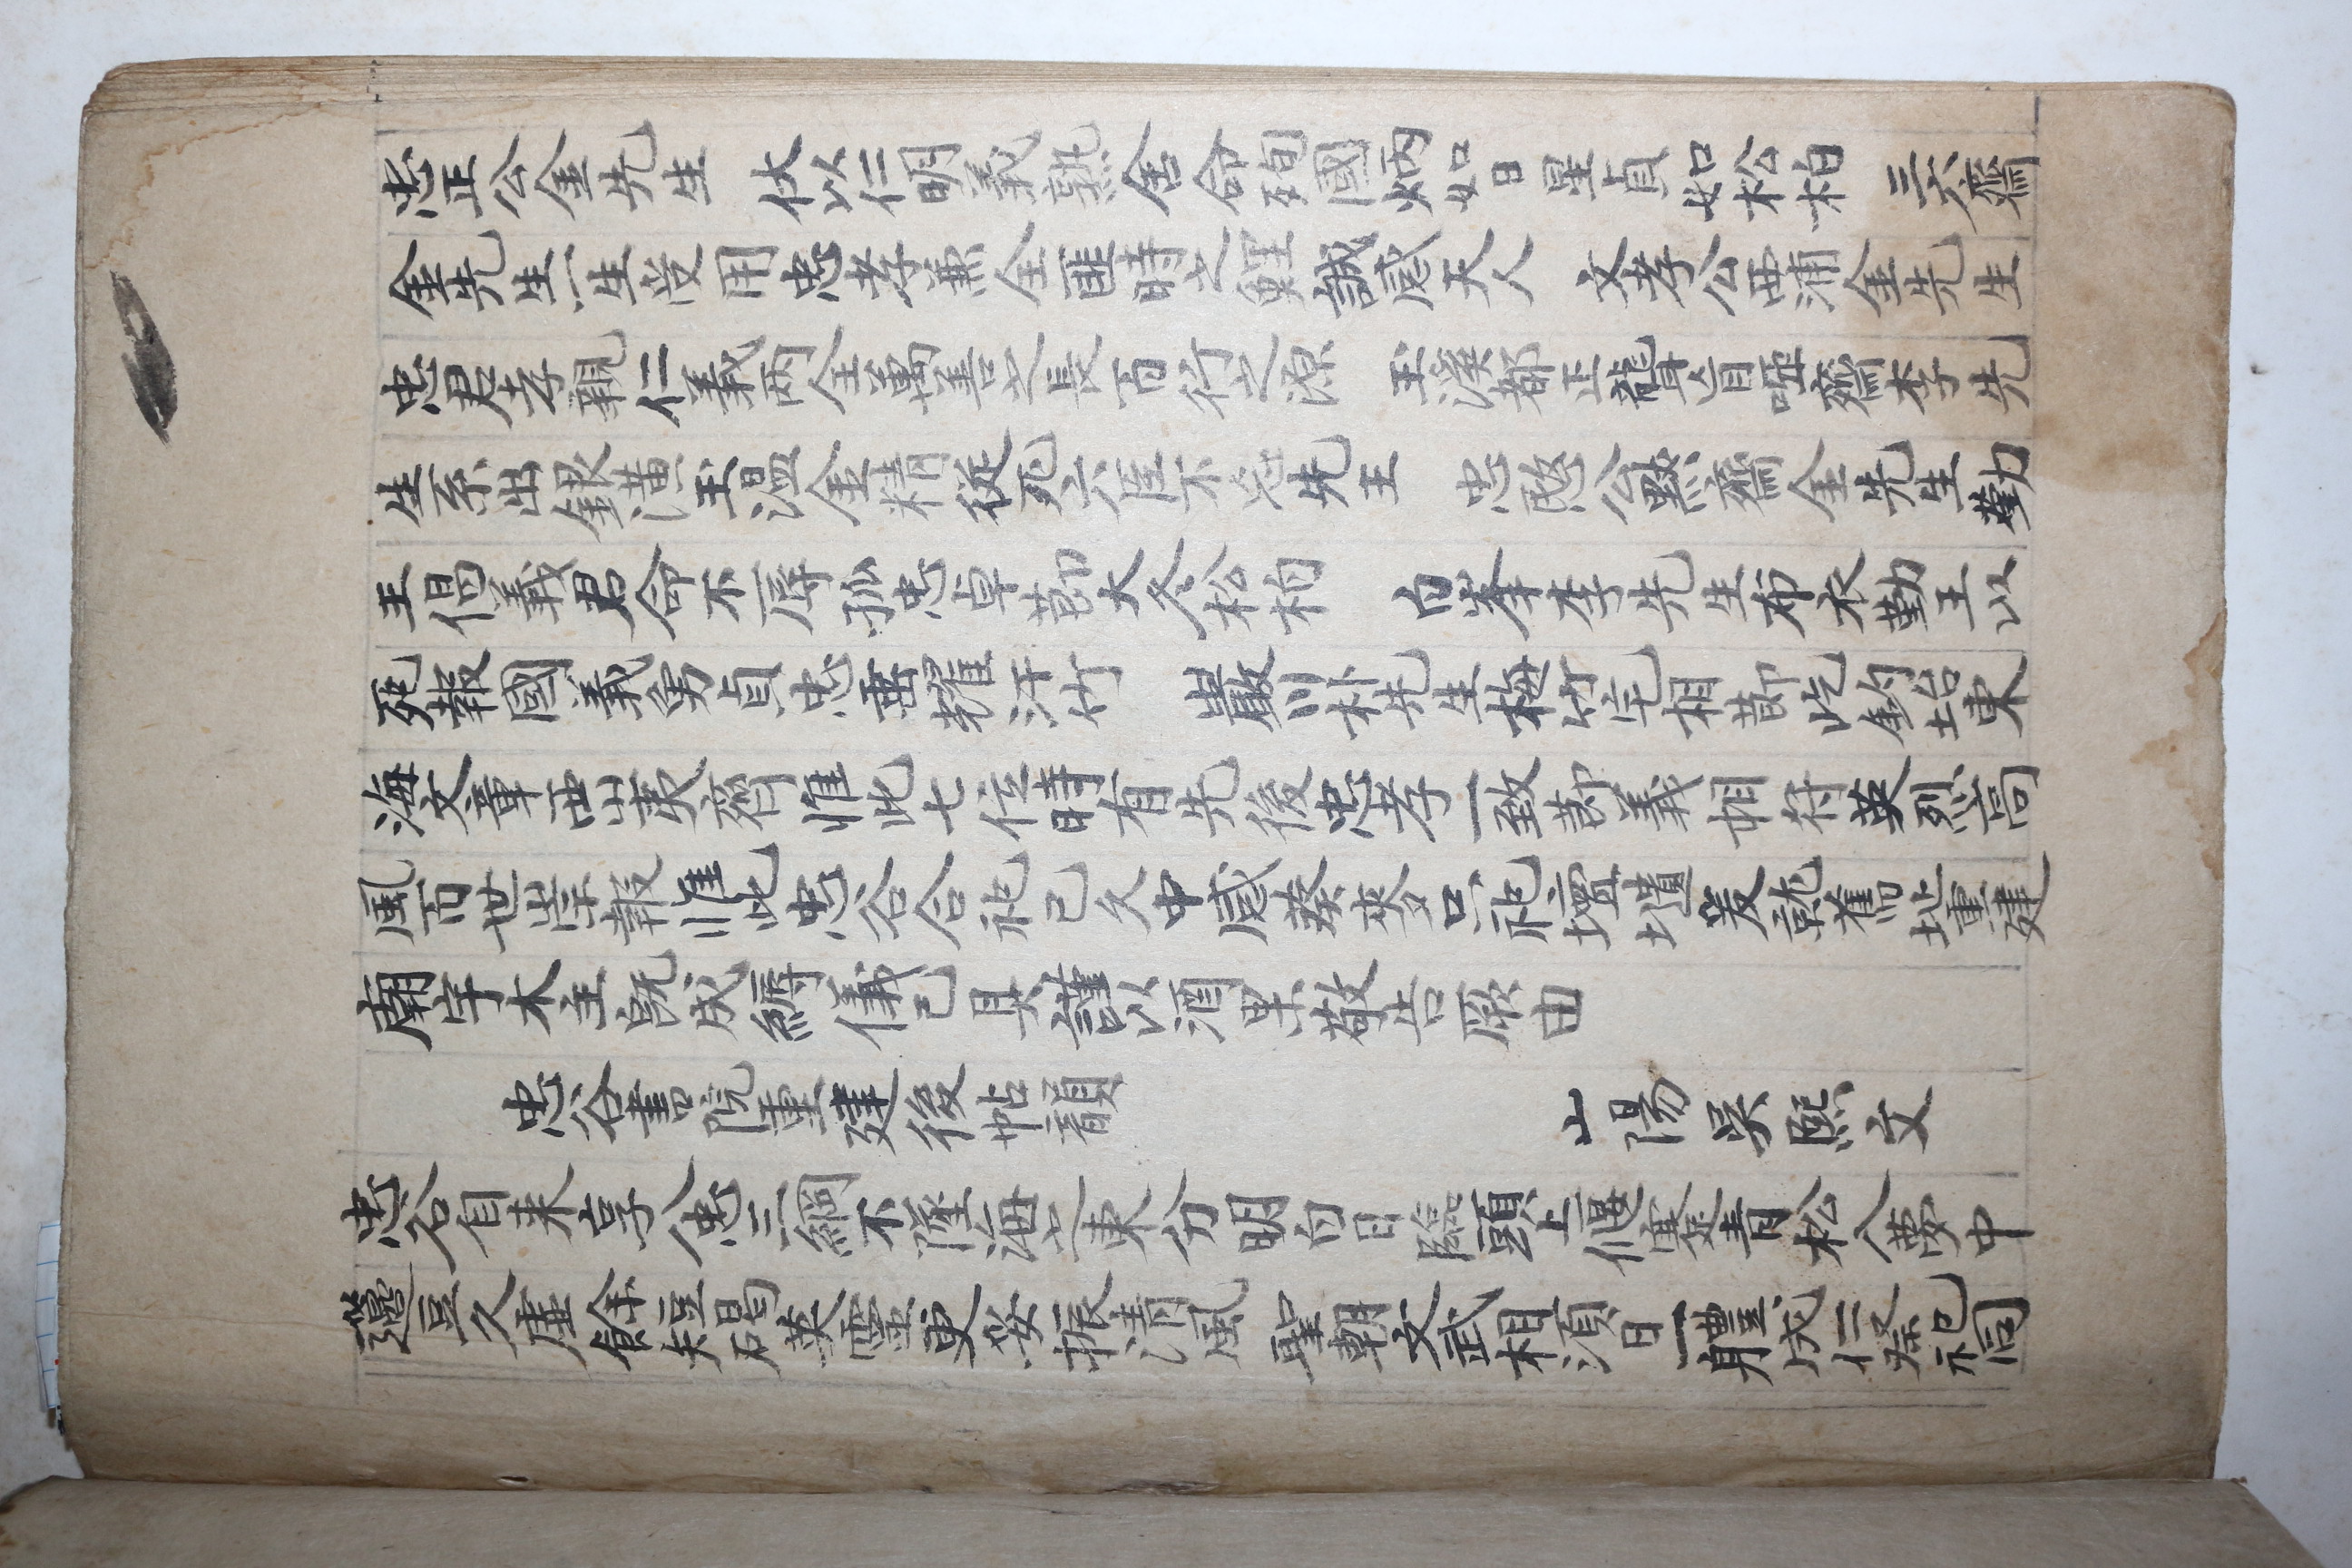 忠正公金先生 伏以仁明義熟舍命殉國炳如日星貞如松柏 三六齋
金先生一生受用忠孝兼全匪時之鯉誠感天人 文孝公西浦金先生
忠君孝親仁義两全萬善之長百行之源 玉溪都正聾盲啞齋李先
生系出銀潢玉温金精從死六臣不忘先王 忠愍公默齋金先生勤
王倡義君命不辱孤忠卓節大冬松柏 白峯李先生布衣勤王以
死報國義勇貞忠垂耀汗竹 巖川朴先生梅竹宅相節屹釣坮東
海文章西山夷齊惟此七位時有先後忠孝一致節義相符英烈高
風百世崇報惟此忠谷合祀已久中感葵麥只祀壇壝爰就舊址重建
廟宇木主旣成縟儀已具謹以酒果敬告厥由
忠谷書院重建後帖韻
山陽吳熙文
忠谷自来享八忠三綱不墜海之東分明白日臨頭上偃蹇青松入夢中
籩豆久虛餘短碣英靈更妥振清風 聖朝文武相湏日一軆成仁祭祀同